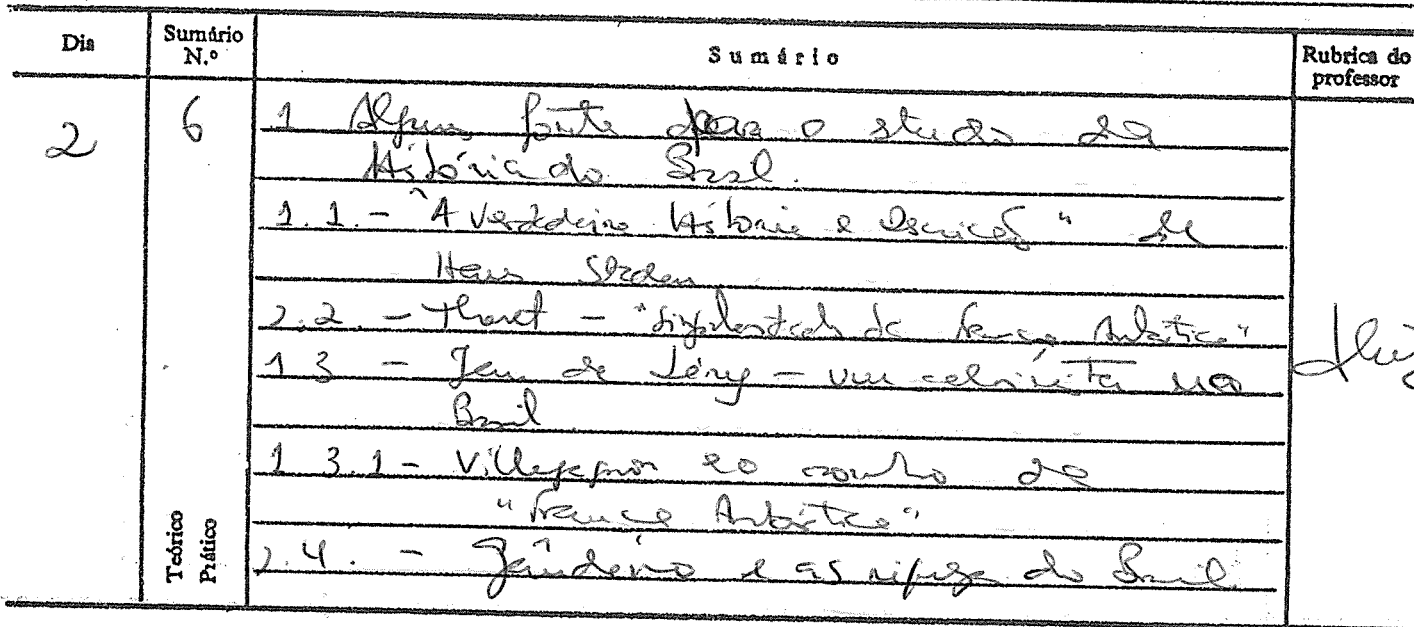 Dia Sumário N.º Sumário Rubrica do professor
2 6 1 Algumas fontes para o estudo da
História do Brasil.
1.1. - "A Verdadeira História e Descrição" de
Hans Staden
1.2. - Thevet - "Singularidades da França Antártica"
1 3 - Jean de Léry - um calvinista no
Brasil
1 3.1 - Villegagnon e o sonho da
"França Antártica"
1.4. - Gândavo e as riquezas do Brasil.
Teórico
Prático